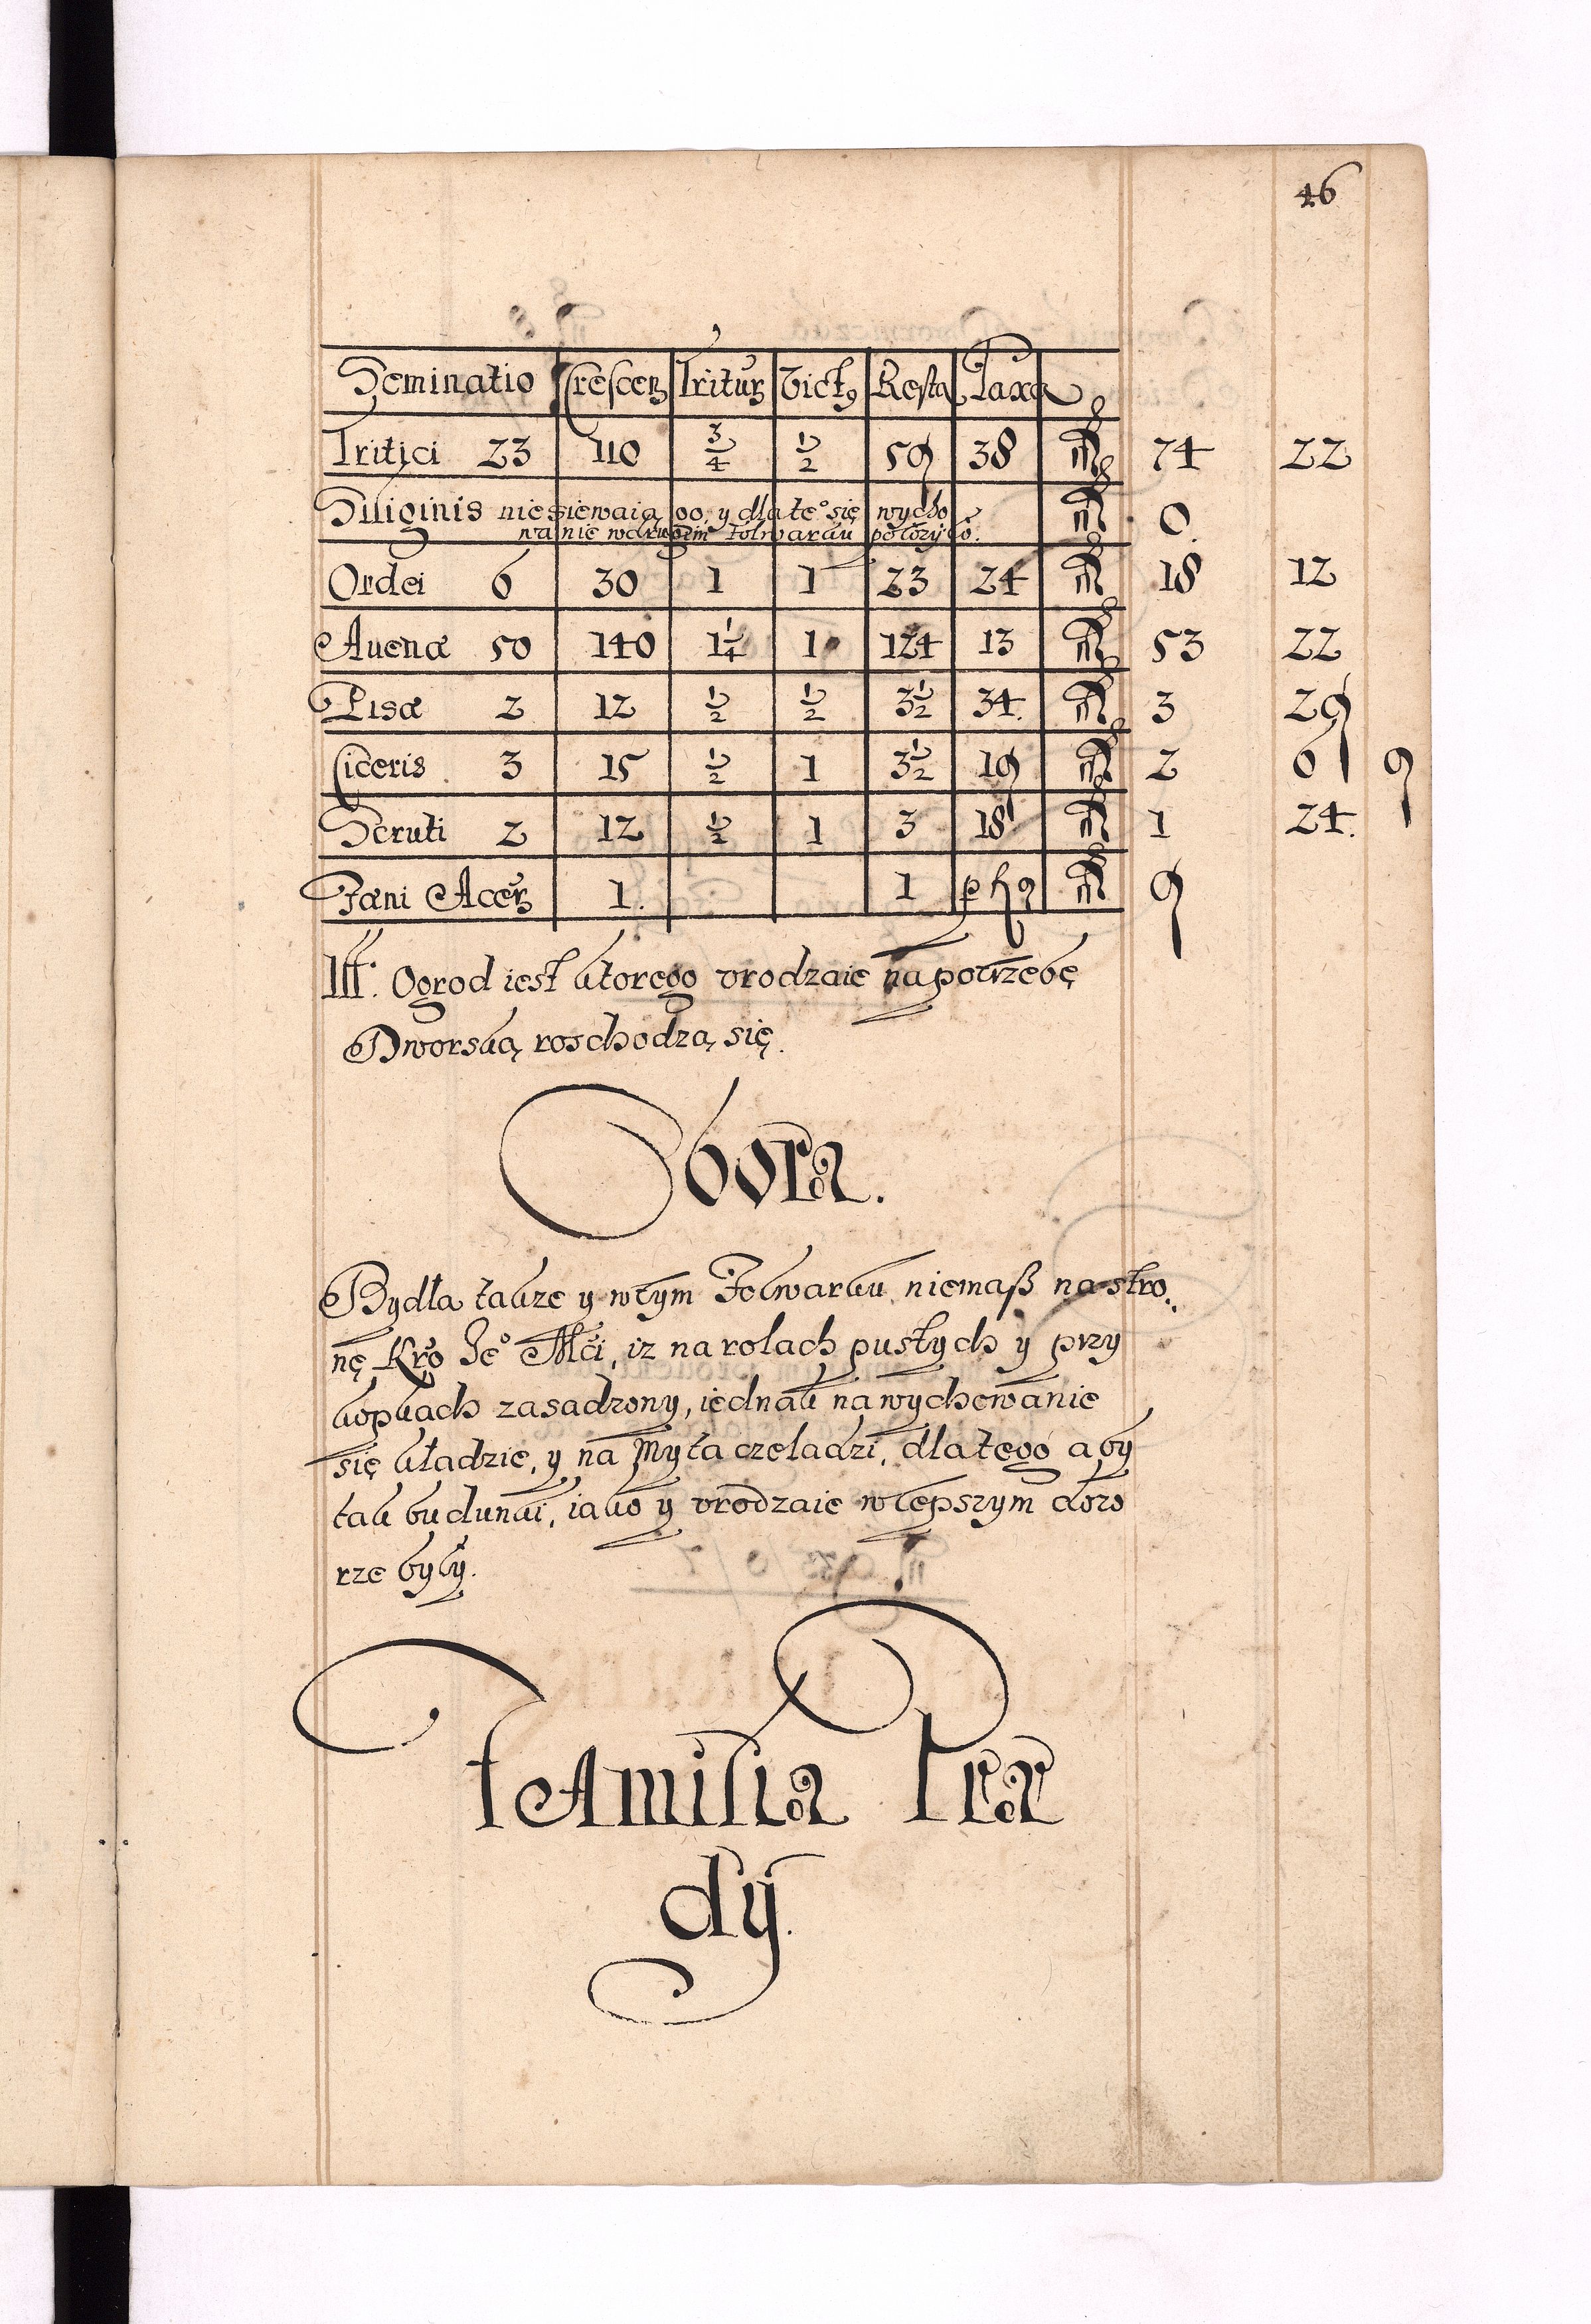 46
Seminatio Crescen Tritur Vict9 Resta Taxa
Tritici 23 110 3/4 1/2 59 38 74 22
Siliginis nie siewaią go, y dla te° się wycho
wanie w drugim folwarku położyło. 0.
Ordei 6 30 1 1 23 24 18 12
Auenæ 50 140 1 1/4 1 124 13 53 22
Pisæ 2 12 1/2 1/2 3 1/2 34. 3 29
Ciceris 3 15 1/2 1 3 1/2 19 2 6 9
Seruti 2 12 1/2 1 3 18 1 24.
Fœni Acer 1. 1 9
Itt: Ogrod iest ktorego vrodzaie na potrzebę
Dworską roschodzą się.
Obora.
Bydła także y w tym Folwarku niemasz na stro
nę Kro Je° Mći, iz na rolach pustych y przy
kopkach zasadzony, iednak na wychowanie
się kładzie, y na Myta czeladzi, dlatego aby
tak budunki, iako y vrodzaie w lepszym dozo
rze były.
Familia Præ
dÿ.